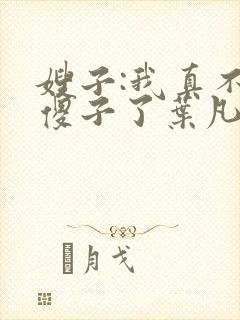 嫂子:我真不
傻子了葉凡
月戈